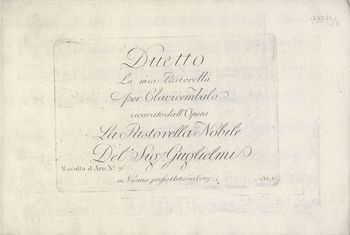 99974/3
Duetto
La mia Pastorella
per Clavicembalo
ricavato dall'Opera
La Pastorella Nobile
Del Sig: Guglielmi
Racolta d'Arie N.
in Vienna presso Artaria Comp.